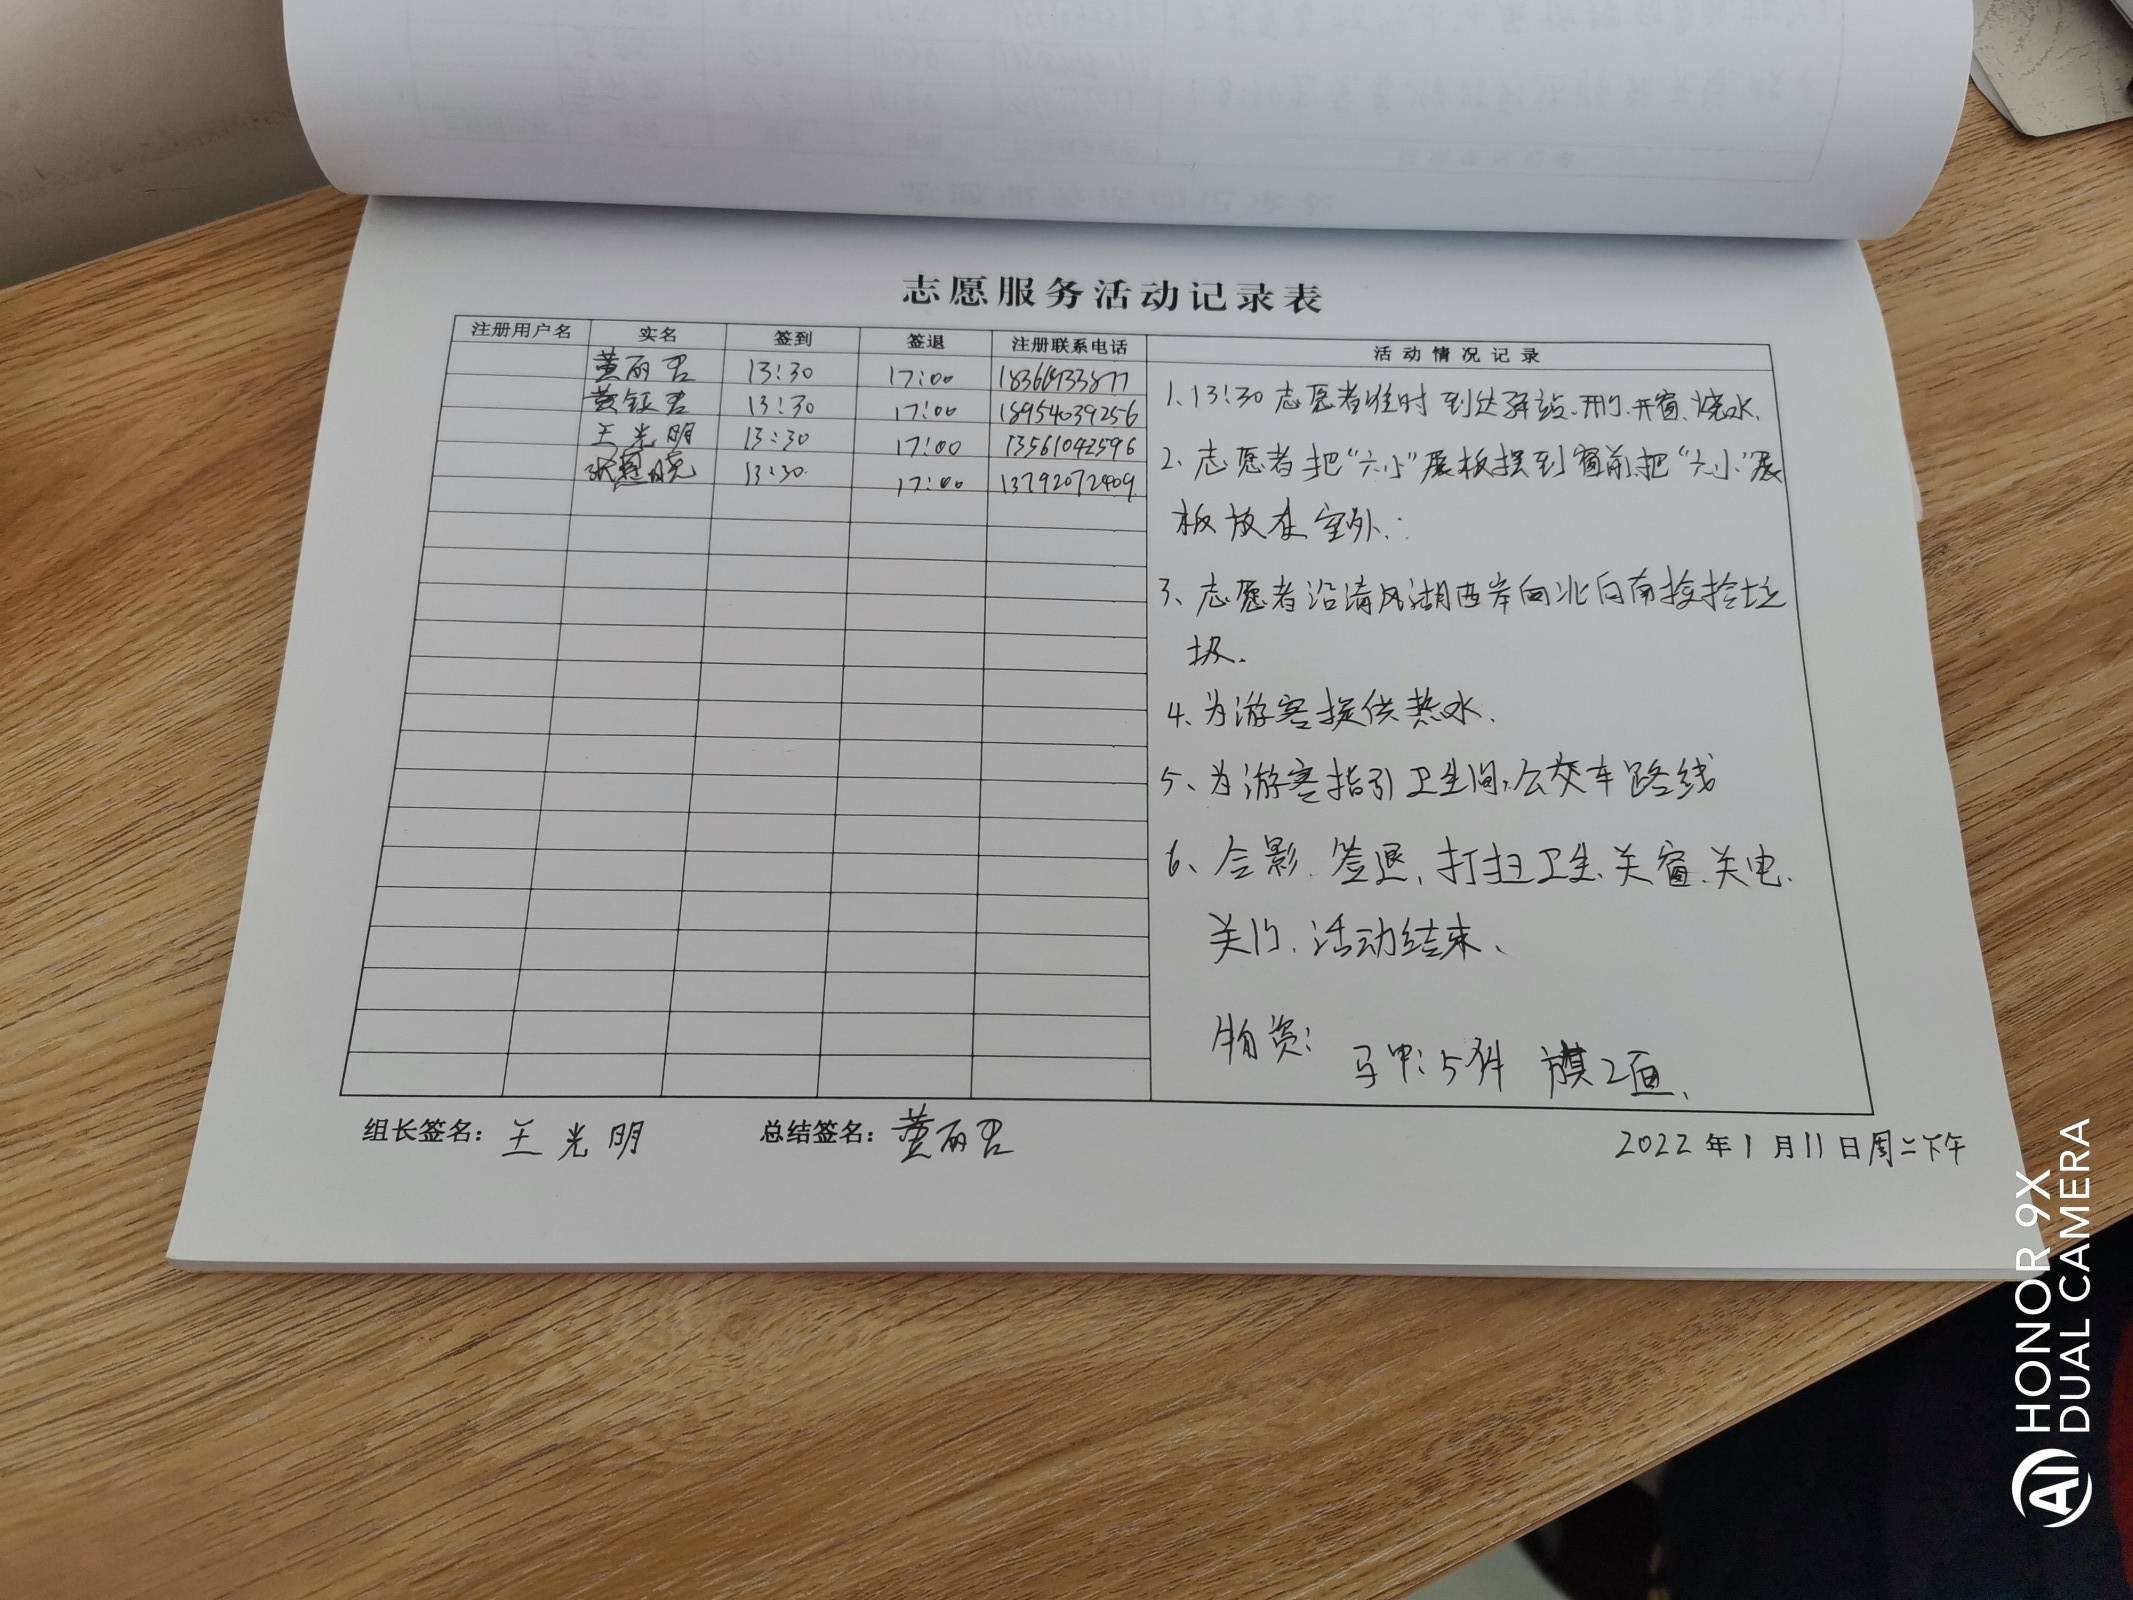 志愿服务活动记录表
注册用户名 实名 签到 签退 注册联系电话 活动情况记录
黄丽君 13:30 17:00
黄钰君 13:30 17:00 18954039256
王光明 13:30 17:00 13561042596
13:30 17:00 13792072409
1、13:30志愿者准时到达驿站、开门、开窗、烧水、
2、志愿者把“六小”展板摆到窗前,把“六小”展
板放在室外:
3、志愿者沿清风湖西岸向北向南捡拾垃
圾.
4、为游客提供热水、
5、为游客指引卫生间,公交车路线
6、合影、签退、打扫卫生、关窗、关电、
关门、活动结束、
物资: 马甲:5件 旗2面、
组长签名: 王光明 总结签名: 黄丽君 2022年1月11日周二下午
HONOR 9X
AI DUAL CAMERA